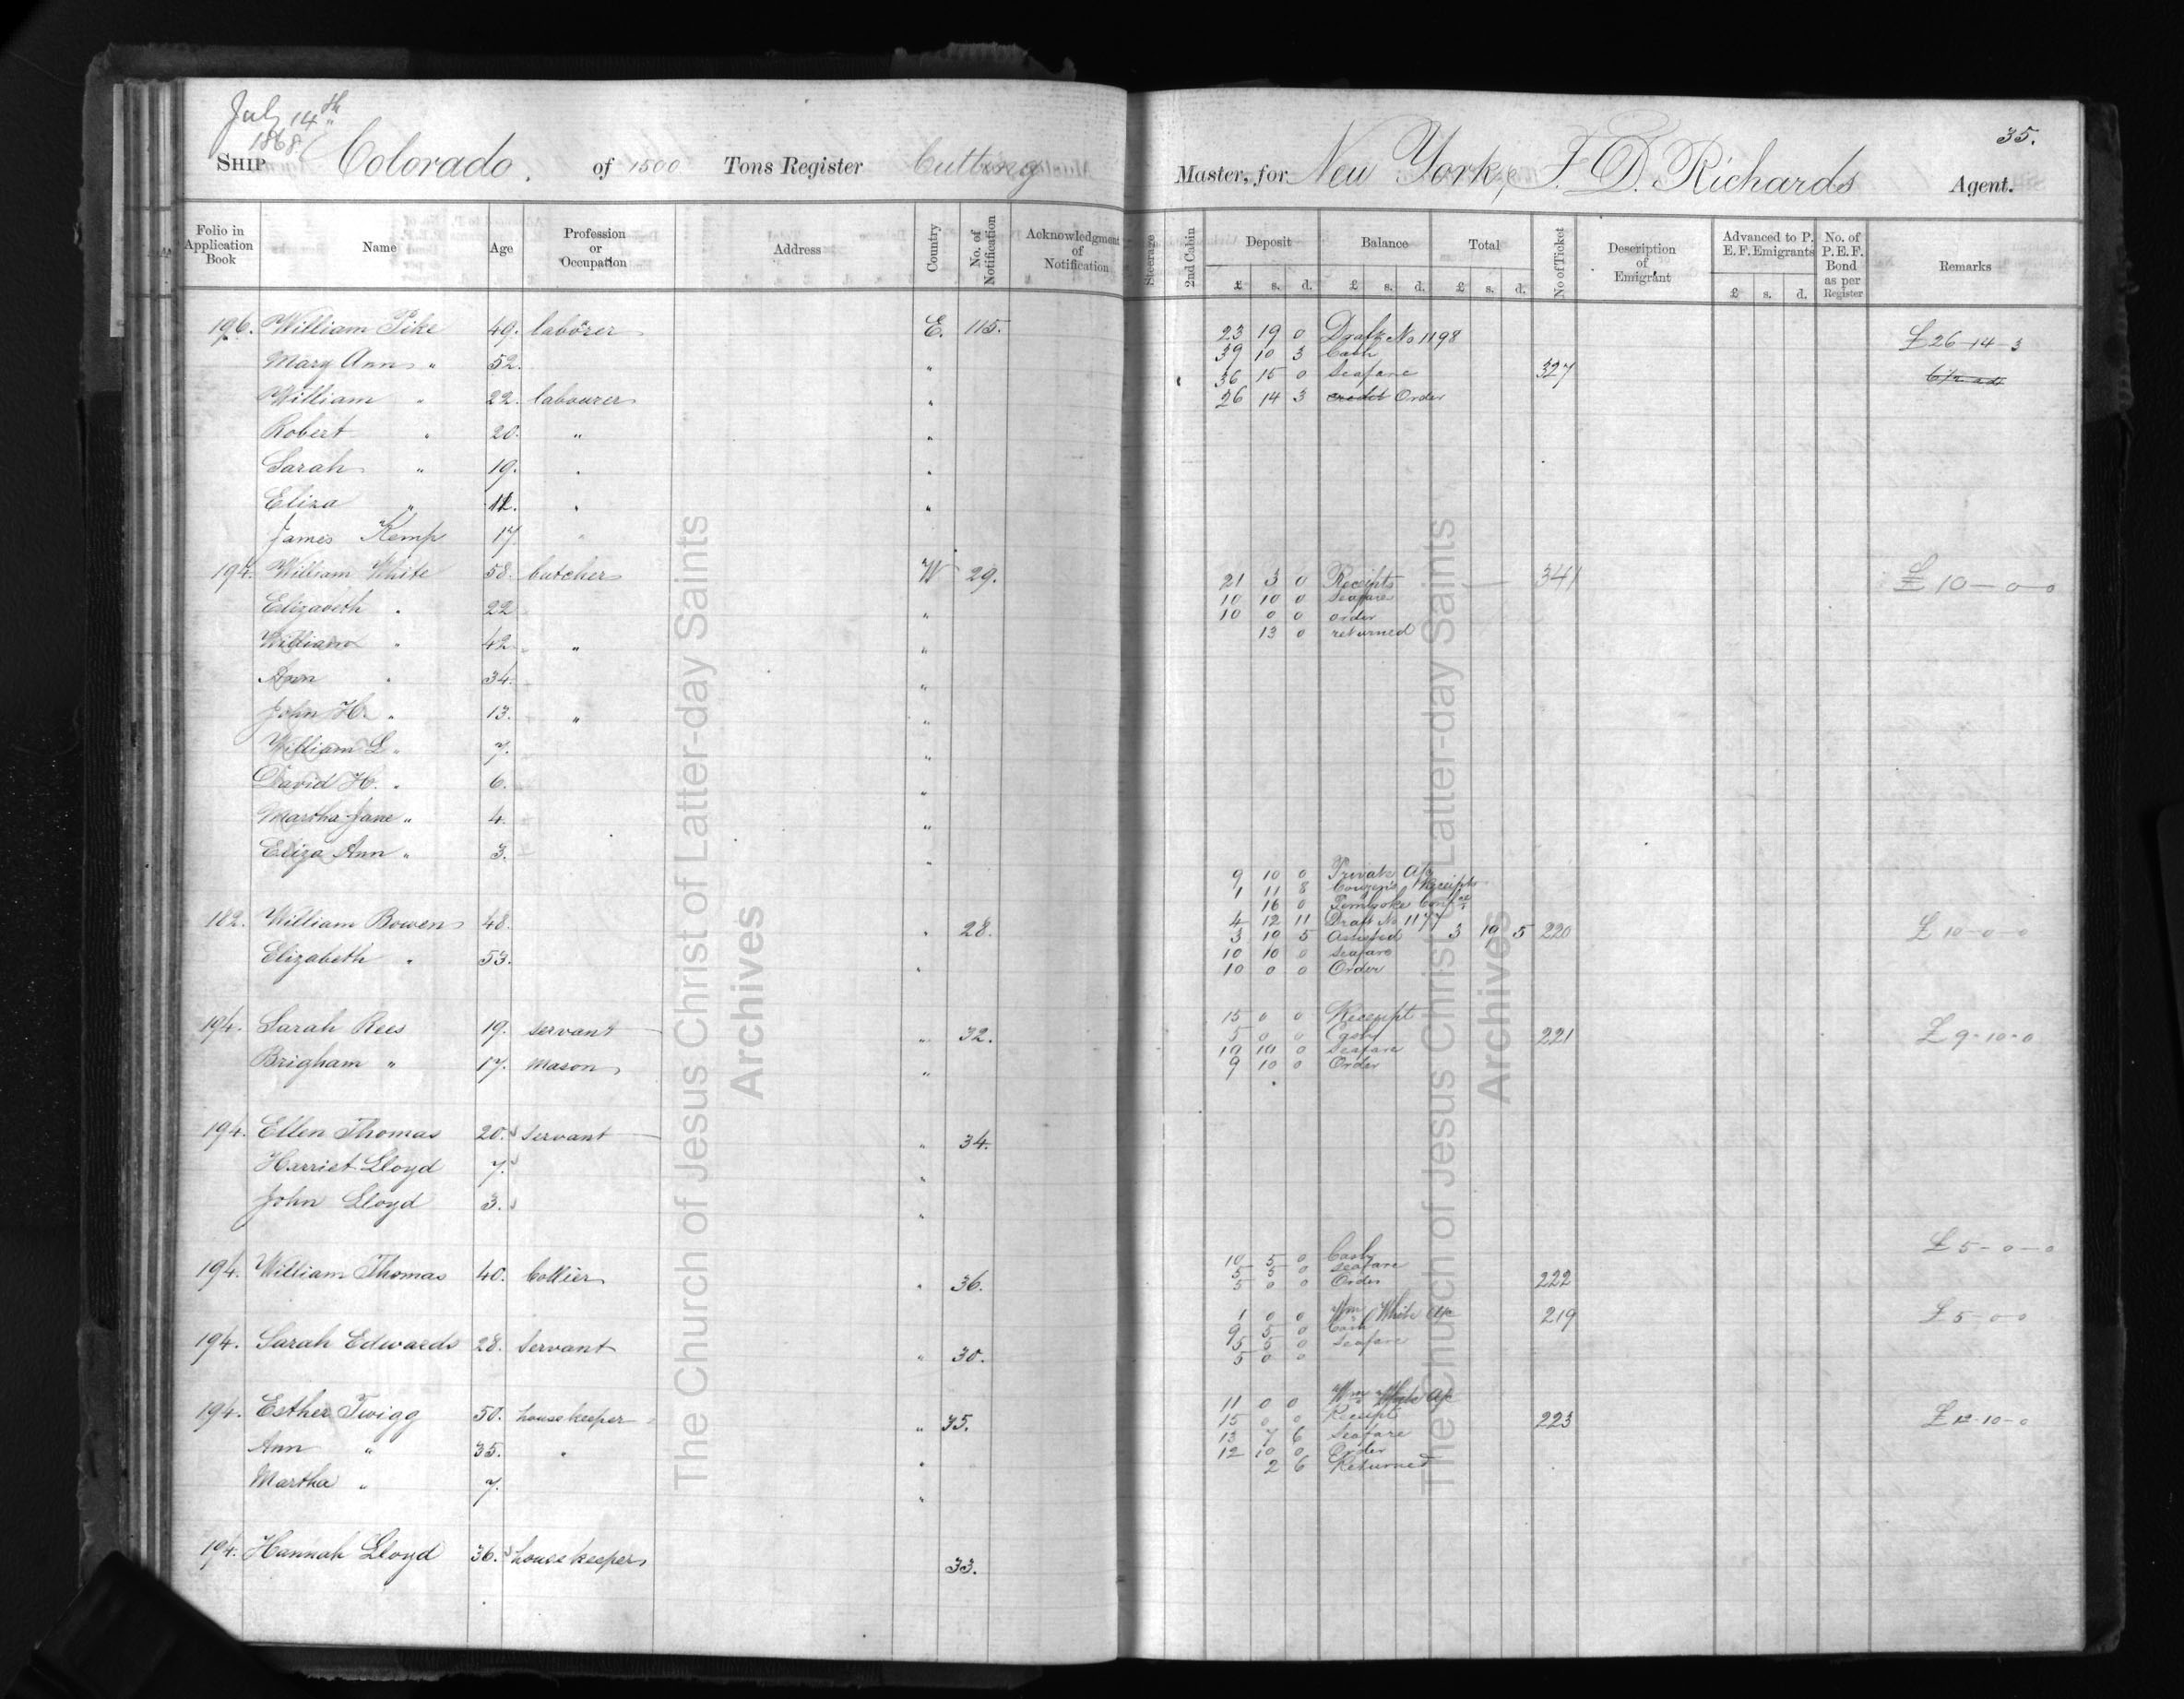 July 14th
1868
35.
SHIP Colorado. of 1500 Tons Register Cutting Master, for New York, F. D. Richards Agent.
Folio in Application Book Name Age Profession or Occupation Address Country No. of Notification Acknowledgment of Notification Steerage 2nd Cabin Deposit Balance Total No of Ticket Description of Emigrant Advanced to P. E. F. Emigrants No. of P. E. F. Bond as per Register Remarks
£ s. d. £ s. d. £ s. d. £ s. d.
196. William Pike 49. laborer E. 115. 23 19 0 No 1198 £26-14-3
Mary Ann " 52. " 39 10 3 Cash
36 15 0 Seafare 327
William " 22. labourer " 26 14 3 credit Order
Robert " 20. " "
Sarah " 19. " "
Eliza " " "
James Kemp 17 "
194. William White 58. butcher W 29. 21 3 0 Receipts 341 £10-0-0
10 10 0 Seafare
Elizabeth " 22 " 10 0 0 order
13 0 returned
William " 42 " "
Ann " 34. "
John H. " 13. " "
William L. " 7. "
David H. " 6. "
Martha Jane " 4. "
Eliza Ann " 3. "
9 10 0 Private A/c
1 11 8 Receipts
16 0 Pembroke Confce
182. William Bowen 48. " 28. 4 12 11 Draft No 1177
3 19 5 Assisted 3 19 5 220 £10-0-0
Elizabeth " 53. " 10 10 0 Seafare
10 0 0 Order
194. Sarah Rees 19. servant " 32. 15 0 0 Receipt
5 0 0 Cash 221 £9-10-0
10 10 0 Seafare
Brigham " 17. Mason " 9 10 0 Order
194. Ellen Thomas 20. servant " 34.
Harriet Lloyd 7. "
John Lloyd 3. "
194. William Thomas 40. Collier " 36. 10 5 0 Cash £5-0-0
5 5 0 Seafare
5 0 0 Order 222
1 0 0 Wm White A/c 219 £5-0-0
194. Sarah Edwards 28. Servant " 30. 9 5 0 Cash
5 5 0 Seafare
5 0 0
194. Esther Twigg 50. housekeeper " 35. 11 0 0 Wm White A/c
15 0 0 Receipt 223 £12-10-0
13 7 6 Seafare
Ann " 35. " " 12 10 0 Order
2 6 Returned
Martha " 7. "
194. Hannah Lloyd 36. housekeeper 33.
The Church of Jesus Christ of Latter-day Saints
Archives
The Church of Jesus Christ of Latter-day Saints
Archives